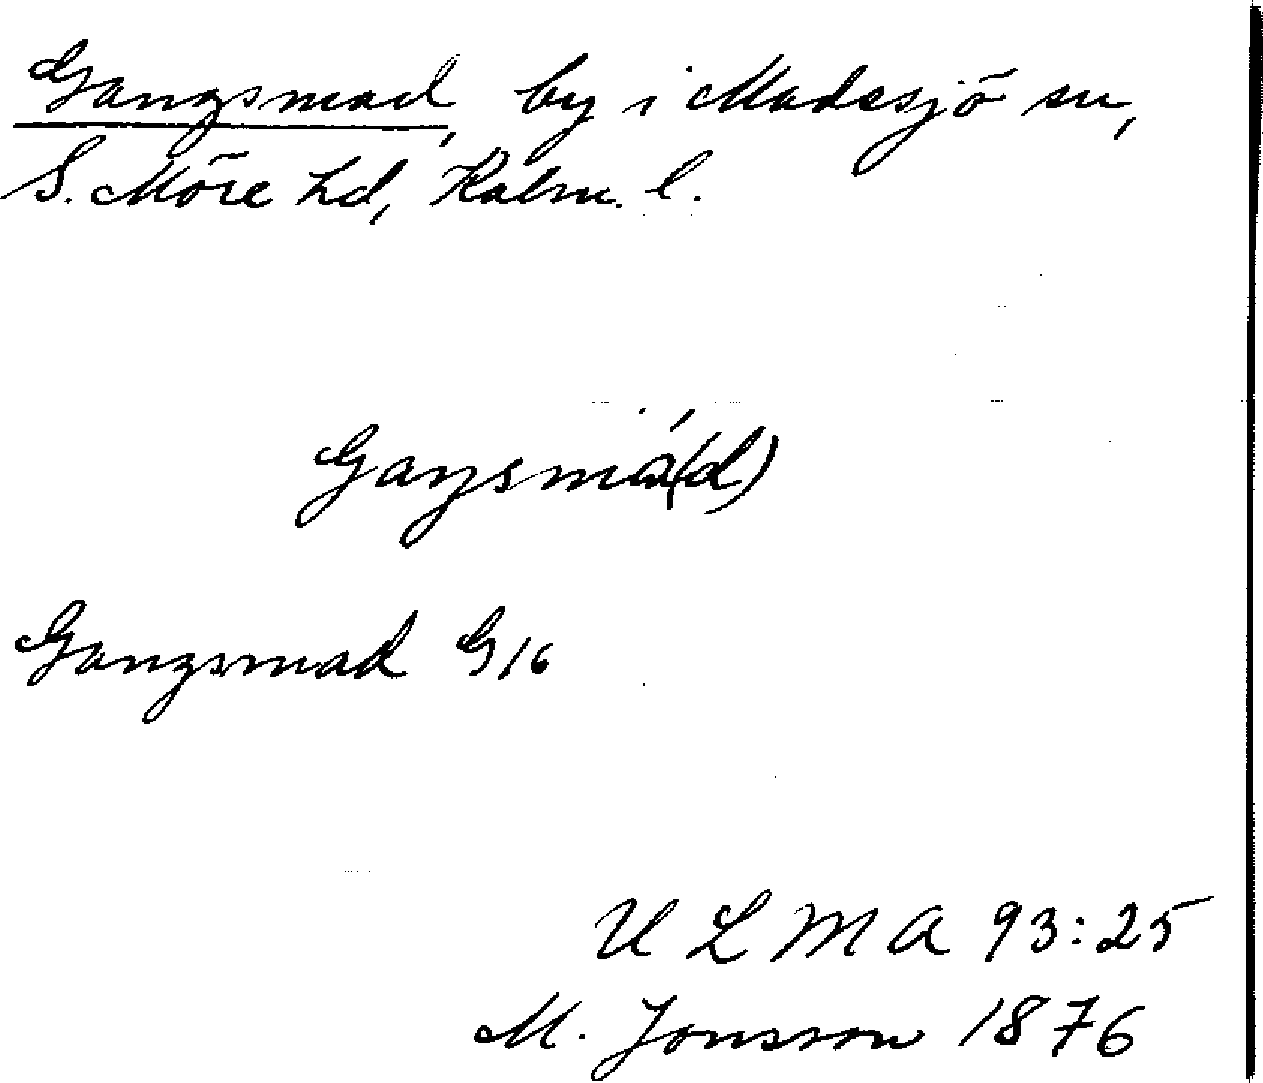 Gangsmad, by i Madesjö sn,
S. Möre hd, Kalm. l.
Gaŋsmá(d)
Gangsmad G16
ULMA 93:25
M. Jonsson 1876